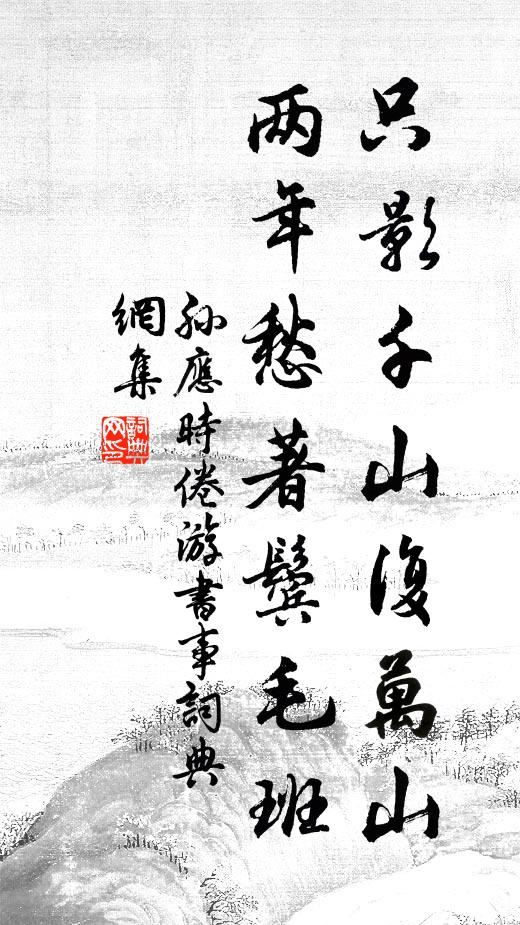 只影千山復萬山
两年愁著鬢毛班
孫應時倦游書事詞典
網集
詞典網